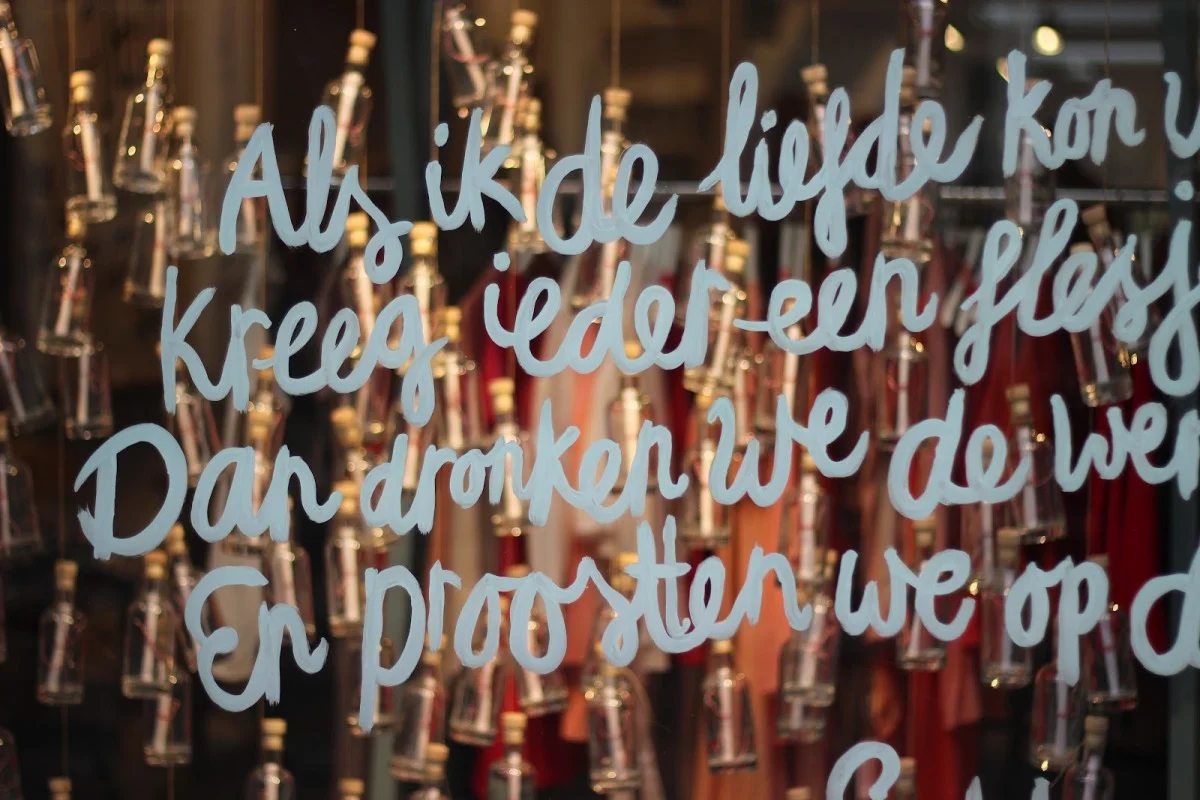 Als ik de liefde kon
Kreeg ieder een
Dan dronken we de
En proostten we op